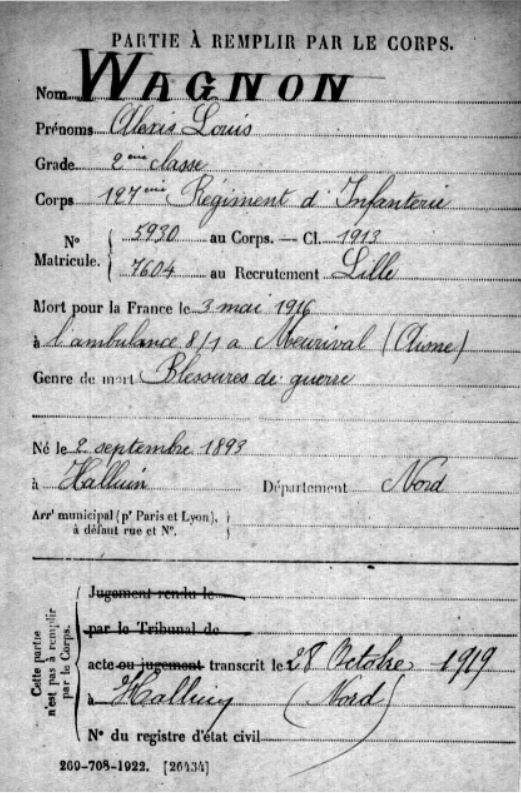 PARTIE À REMPLIR PAR LE CORPS.
Nom WAGNON
Prénoms Alexis Louis
Grade 2ème classe
Corps 127ème Régiment d'Infanterie
N° Matricule. { 5930 au Corps. — Cl. 1913
7604 au Recrutement Lille
Mort pour la France le 3 mai 1916
à l'ambulance 8/1 a Meurival (Aisne)
Genre de mort Blessures de guerre
Né le 2 septembre 1893
à Halluin Département Nord
Arrt municipal (pr Paris et Lyon),
à défaut rue et N°.
Cette partie n'est pas à remplir par le Corps.
Jugement rendu le
par le Tribunal de
acte ou jugement transcrit le 28 Octobre 1919
à Halluin (Nord)
N° du registre d'état civil
269-708-1922. [26434]